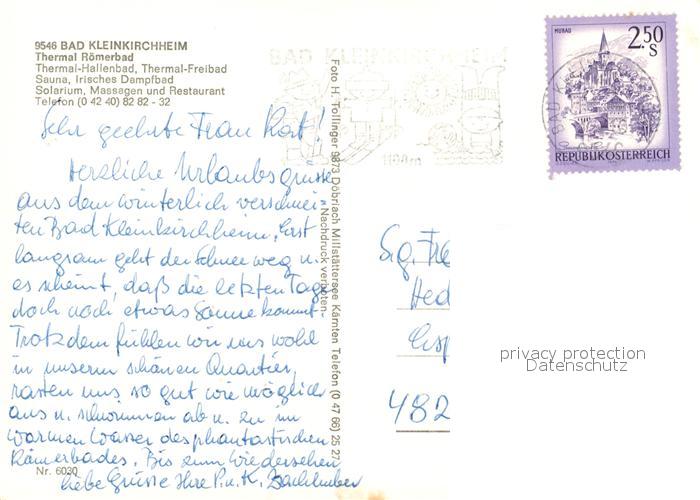 9546 BAD KLEINKIRCHHEIM
Thermal Römerbad
Thermal-Hallenbad, Thermal-Freibad
Sauna, Irisches Dampfbad
Solarium, Massagen und Restaurant
Telefon (0 42 40) 82 82 - 32
Sehr geehrte Frau
Herzliche Urlaubsgrüsse
aus dem winterlich verschnei-
ten Bad Kleinkirchheim. Erst
langsam geht der Schnee weg u.
es scheint, daß die letzten Tage
doch noch etwas Sonne kommt.
Trotzdem fühlen wir uns wohl
in unserem schönen Quartier,
rasten uns so gut wie möglich
aus u. schwimmen ab u. zu im
warmen Wasser des phantastischen
Römerbades. Bis zum Wiedersehen
liebe Grüsse Ihre P. u. K.
Nr. 6030
Foto H. Tollinger 9873 Döbriach Millstättersee Kärnten Telefon (0 47 66) 25 27
- Nachdruck verboten -
BAD KLEINKIRCHHEIM
1100m
MURAU
2.50 S
REPUBLIK ÖSTERREICH
482
privacy protection
Datenschutz